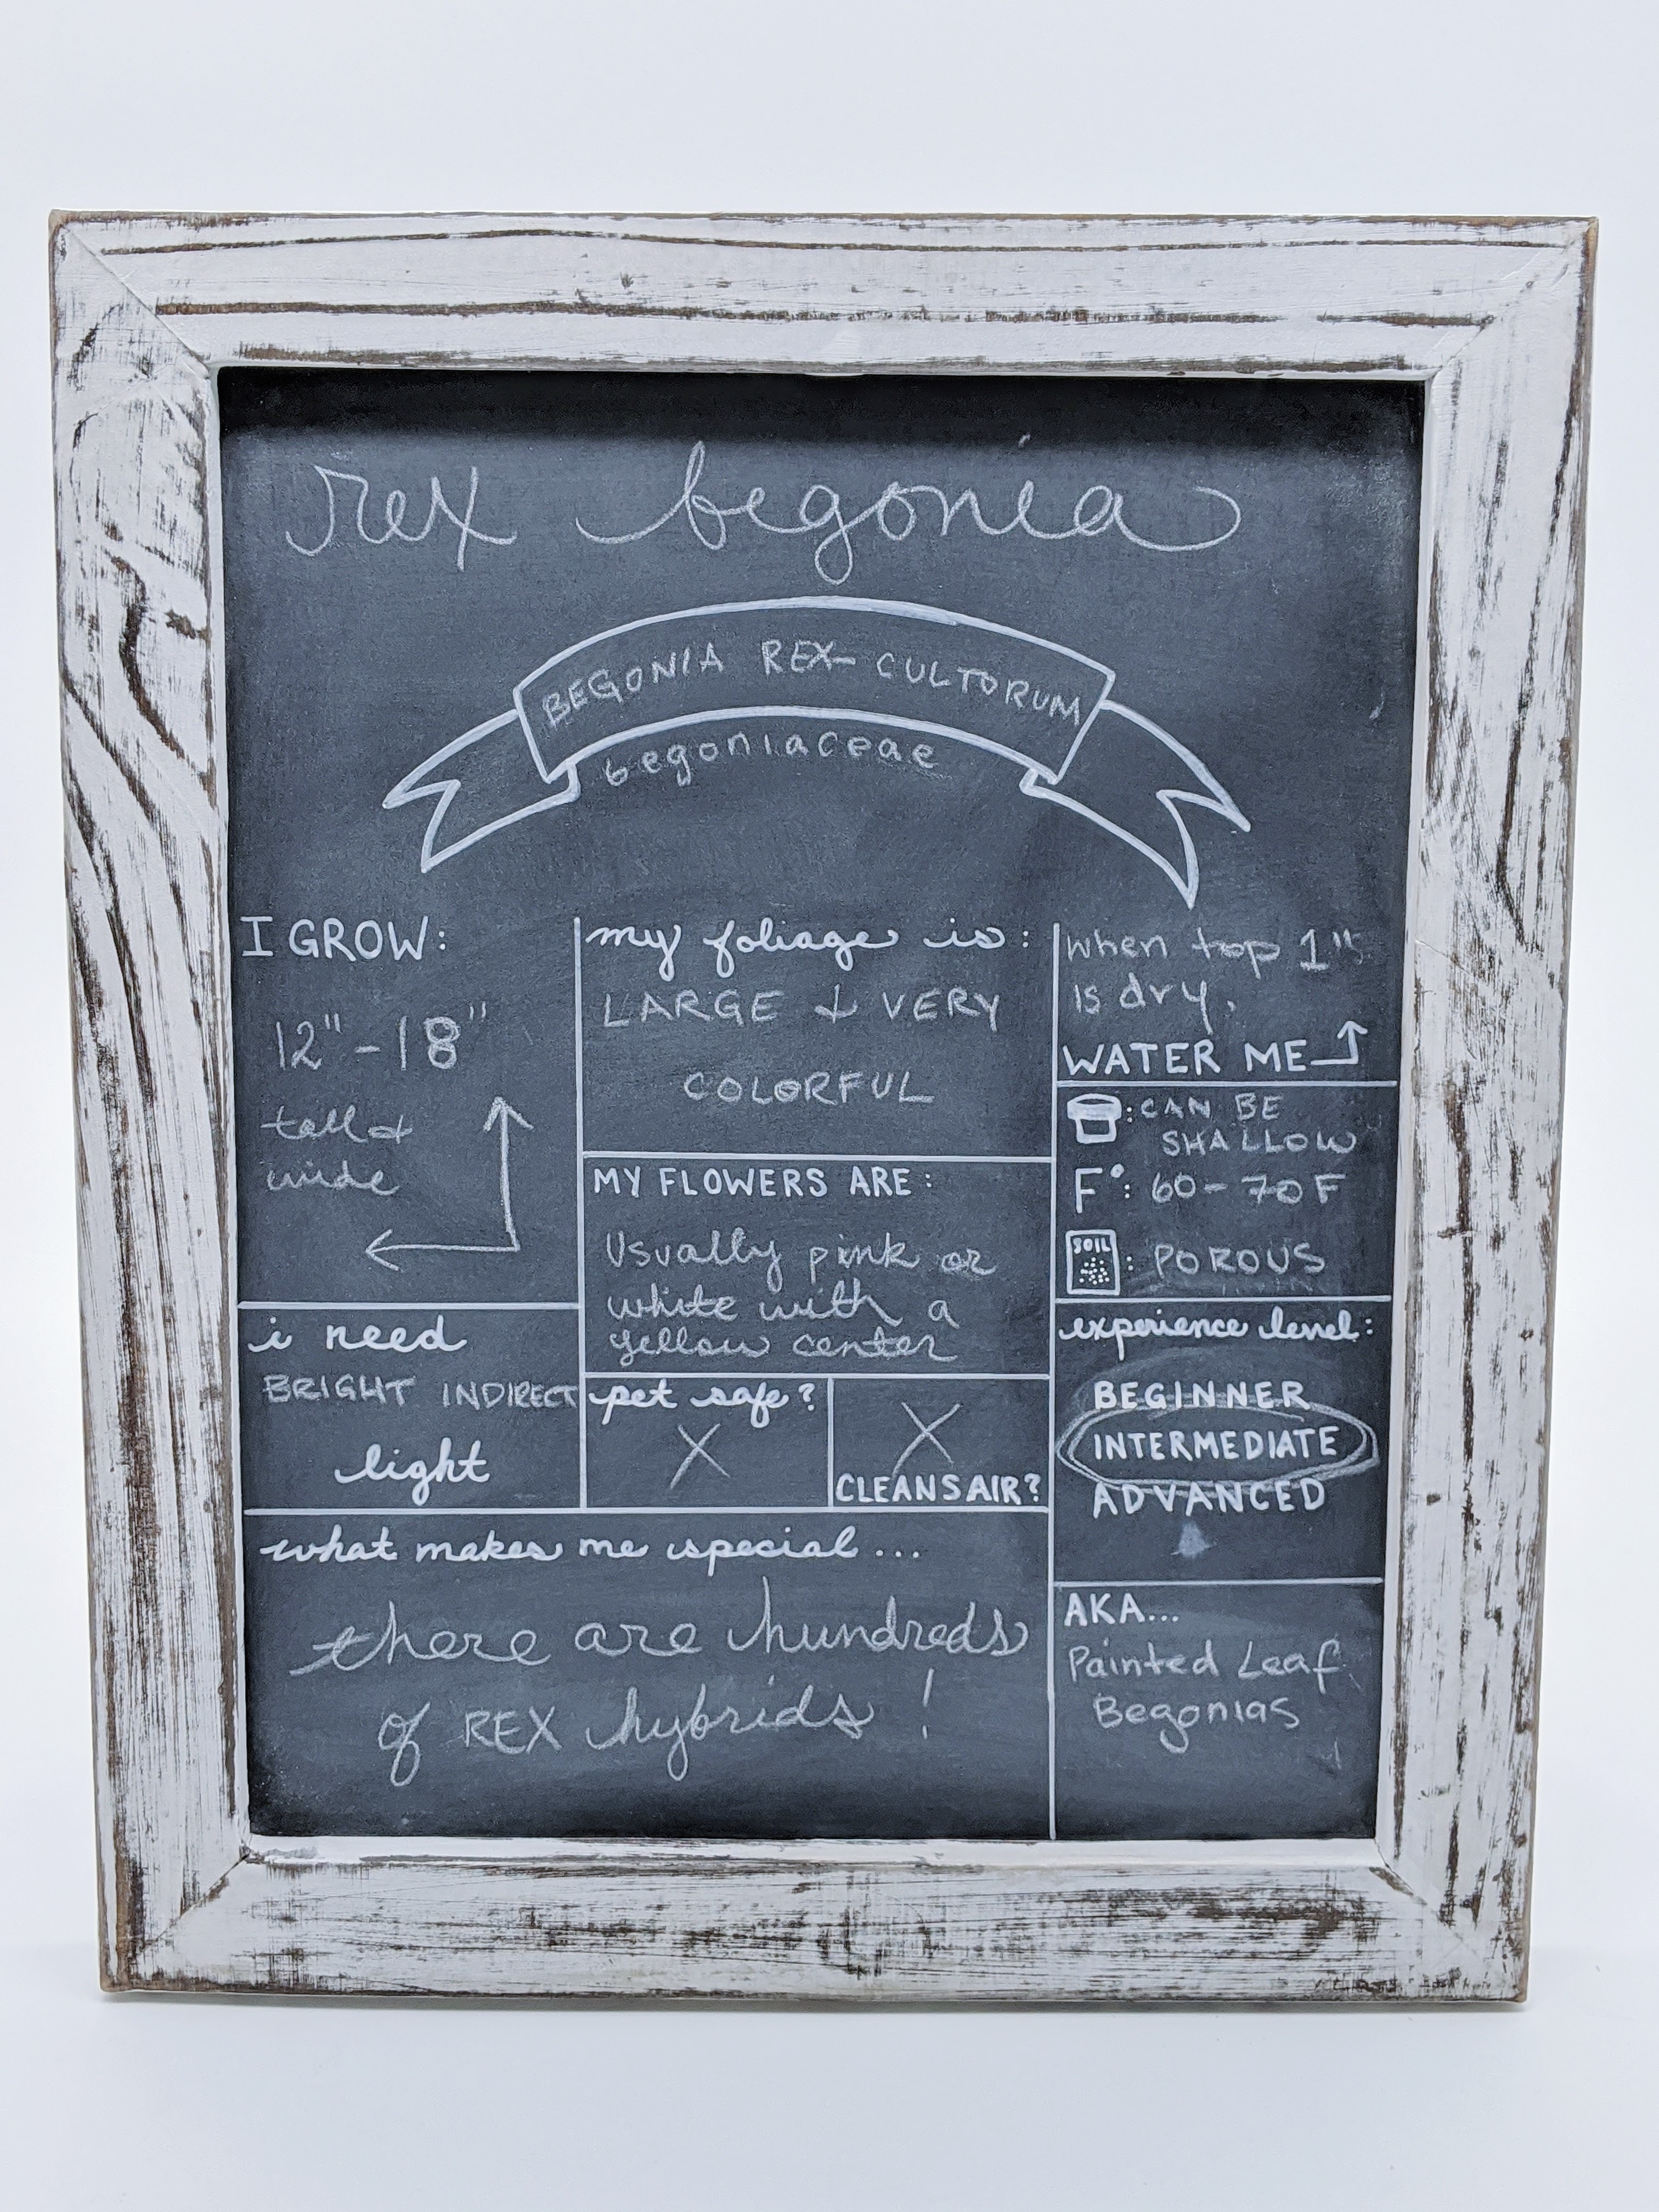 rex begonia
BEGONIA REX-CULTORUM
begoniaceae
I GROW:
12"-18"
tall &
wide
i need
BRIGHT INDIRECT
light
my foliage is:
LARGE & VERY
COLORFUL
MY FLOWERS ARE:
Usually pink or
white with a
yellow center
pet safe?
X
X
CLEANS AIR?
when top 1"
is dry,
WATER ME
: CAN BE
SHALLOW
F°: 60-70F
SOIL : POROUS
experience level:
BEGINNER
INTERMEDIATE
ADVANCED
what makes me special...
there are hundreds
of REX hybrids!
AKA...
Painted Leaf
Begonias